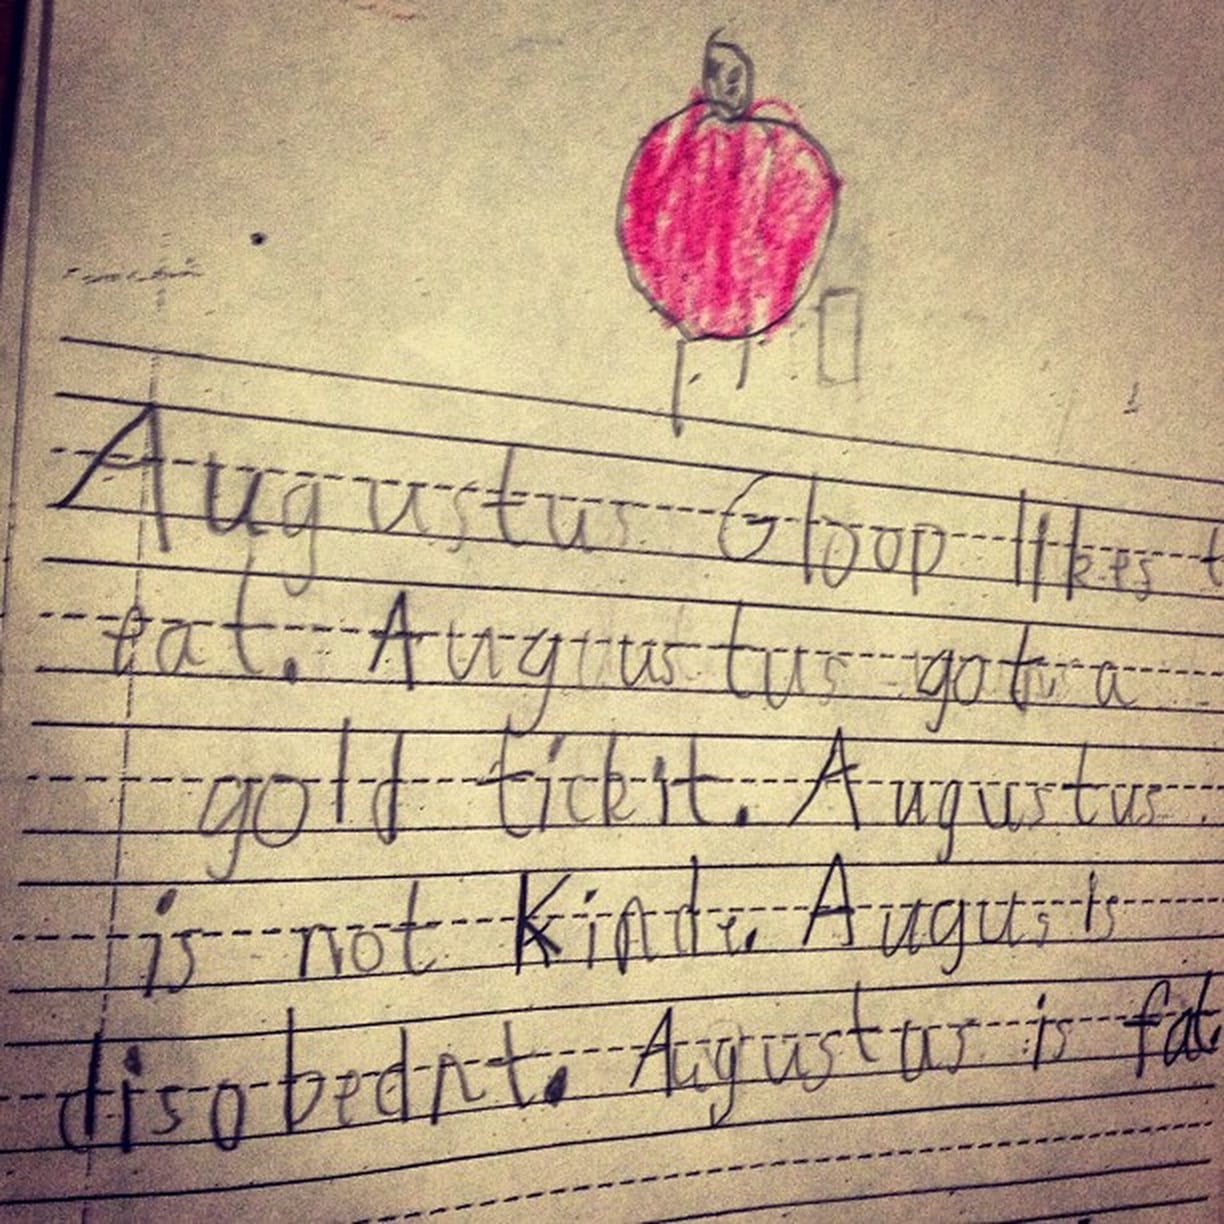 Augustus Gloop likes t
eat. Augustus got a
gold tickit. Augustus
is not Kinde. Augus is
disobednt. Augustus is fat